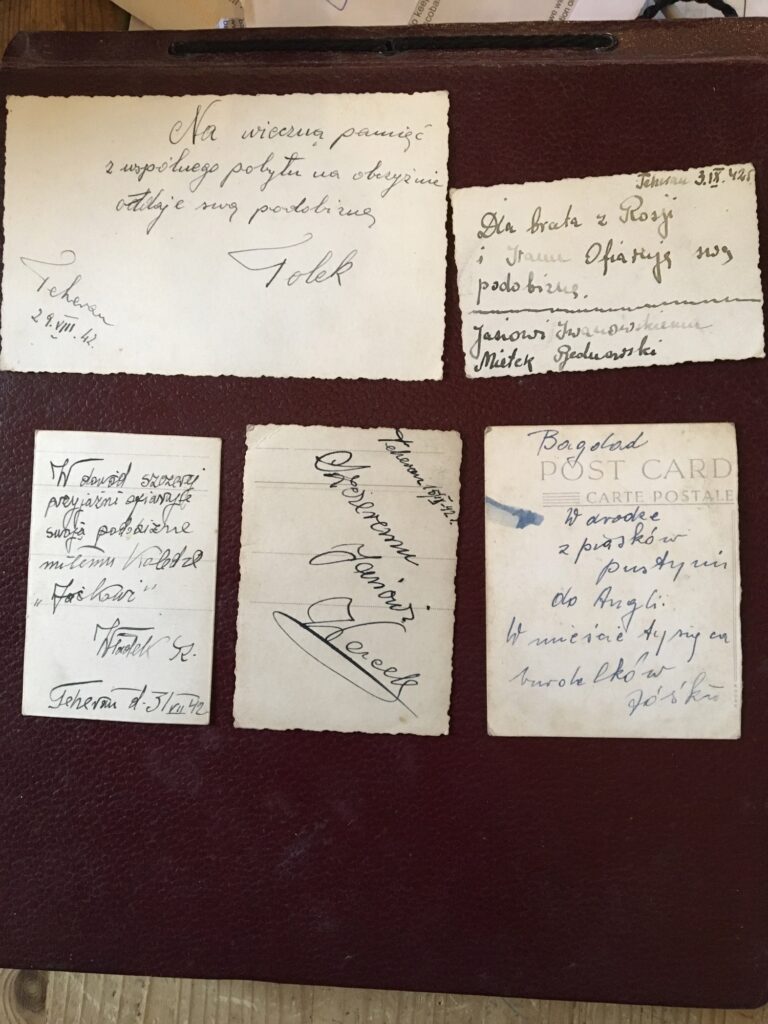 Na wieczną pamięć
z wspólnego pobytu na obczyźnie
oddaje swą podobiznę
Tolek
Teheran
29.VIII.42.
Teheran 3.IX.42r
Dla brata z Rosji
i Iranu Ofiaruję swą
podobiznę.
Jasiowi Iwanowskiemu
Mietek
W dowód szczerej
przyjaźni ofiaruję
swoją podobiznę
miłemu Koledze
„Jaśkowi”
Władek
Teheran d. 31/VII 42
Teheran
Szczeremu
Jasiowi
Bagdad
POST CARD
CARTE POSTALE
W drodze
z piasków
pustyni
do Angli.
W mieście tysiąca
burdelków